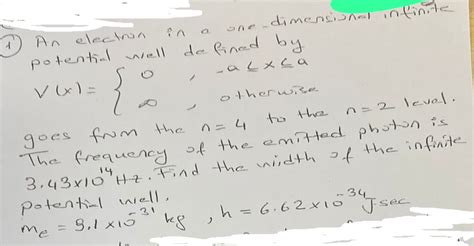 1) An electron in a one-dimensional infinite
potential well defined by
V(x) = { 0 , -a ≤ x ≤ a
∞ , otherwise
goes from the n=4 to the n=2 level.
The frequency of the emitted photon is
3.43x10^14 Hz. Find the width of the infinite
potential well.
me = 9.1 x10^-31 kg , h = 6.62x10^-34 J sec